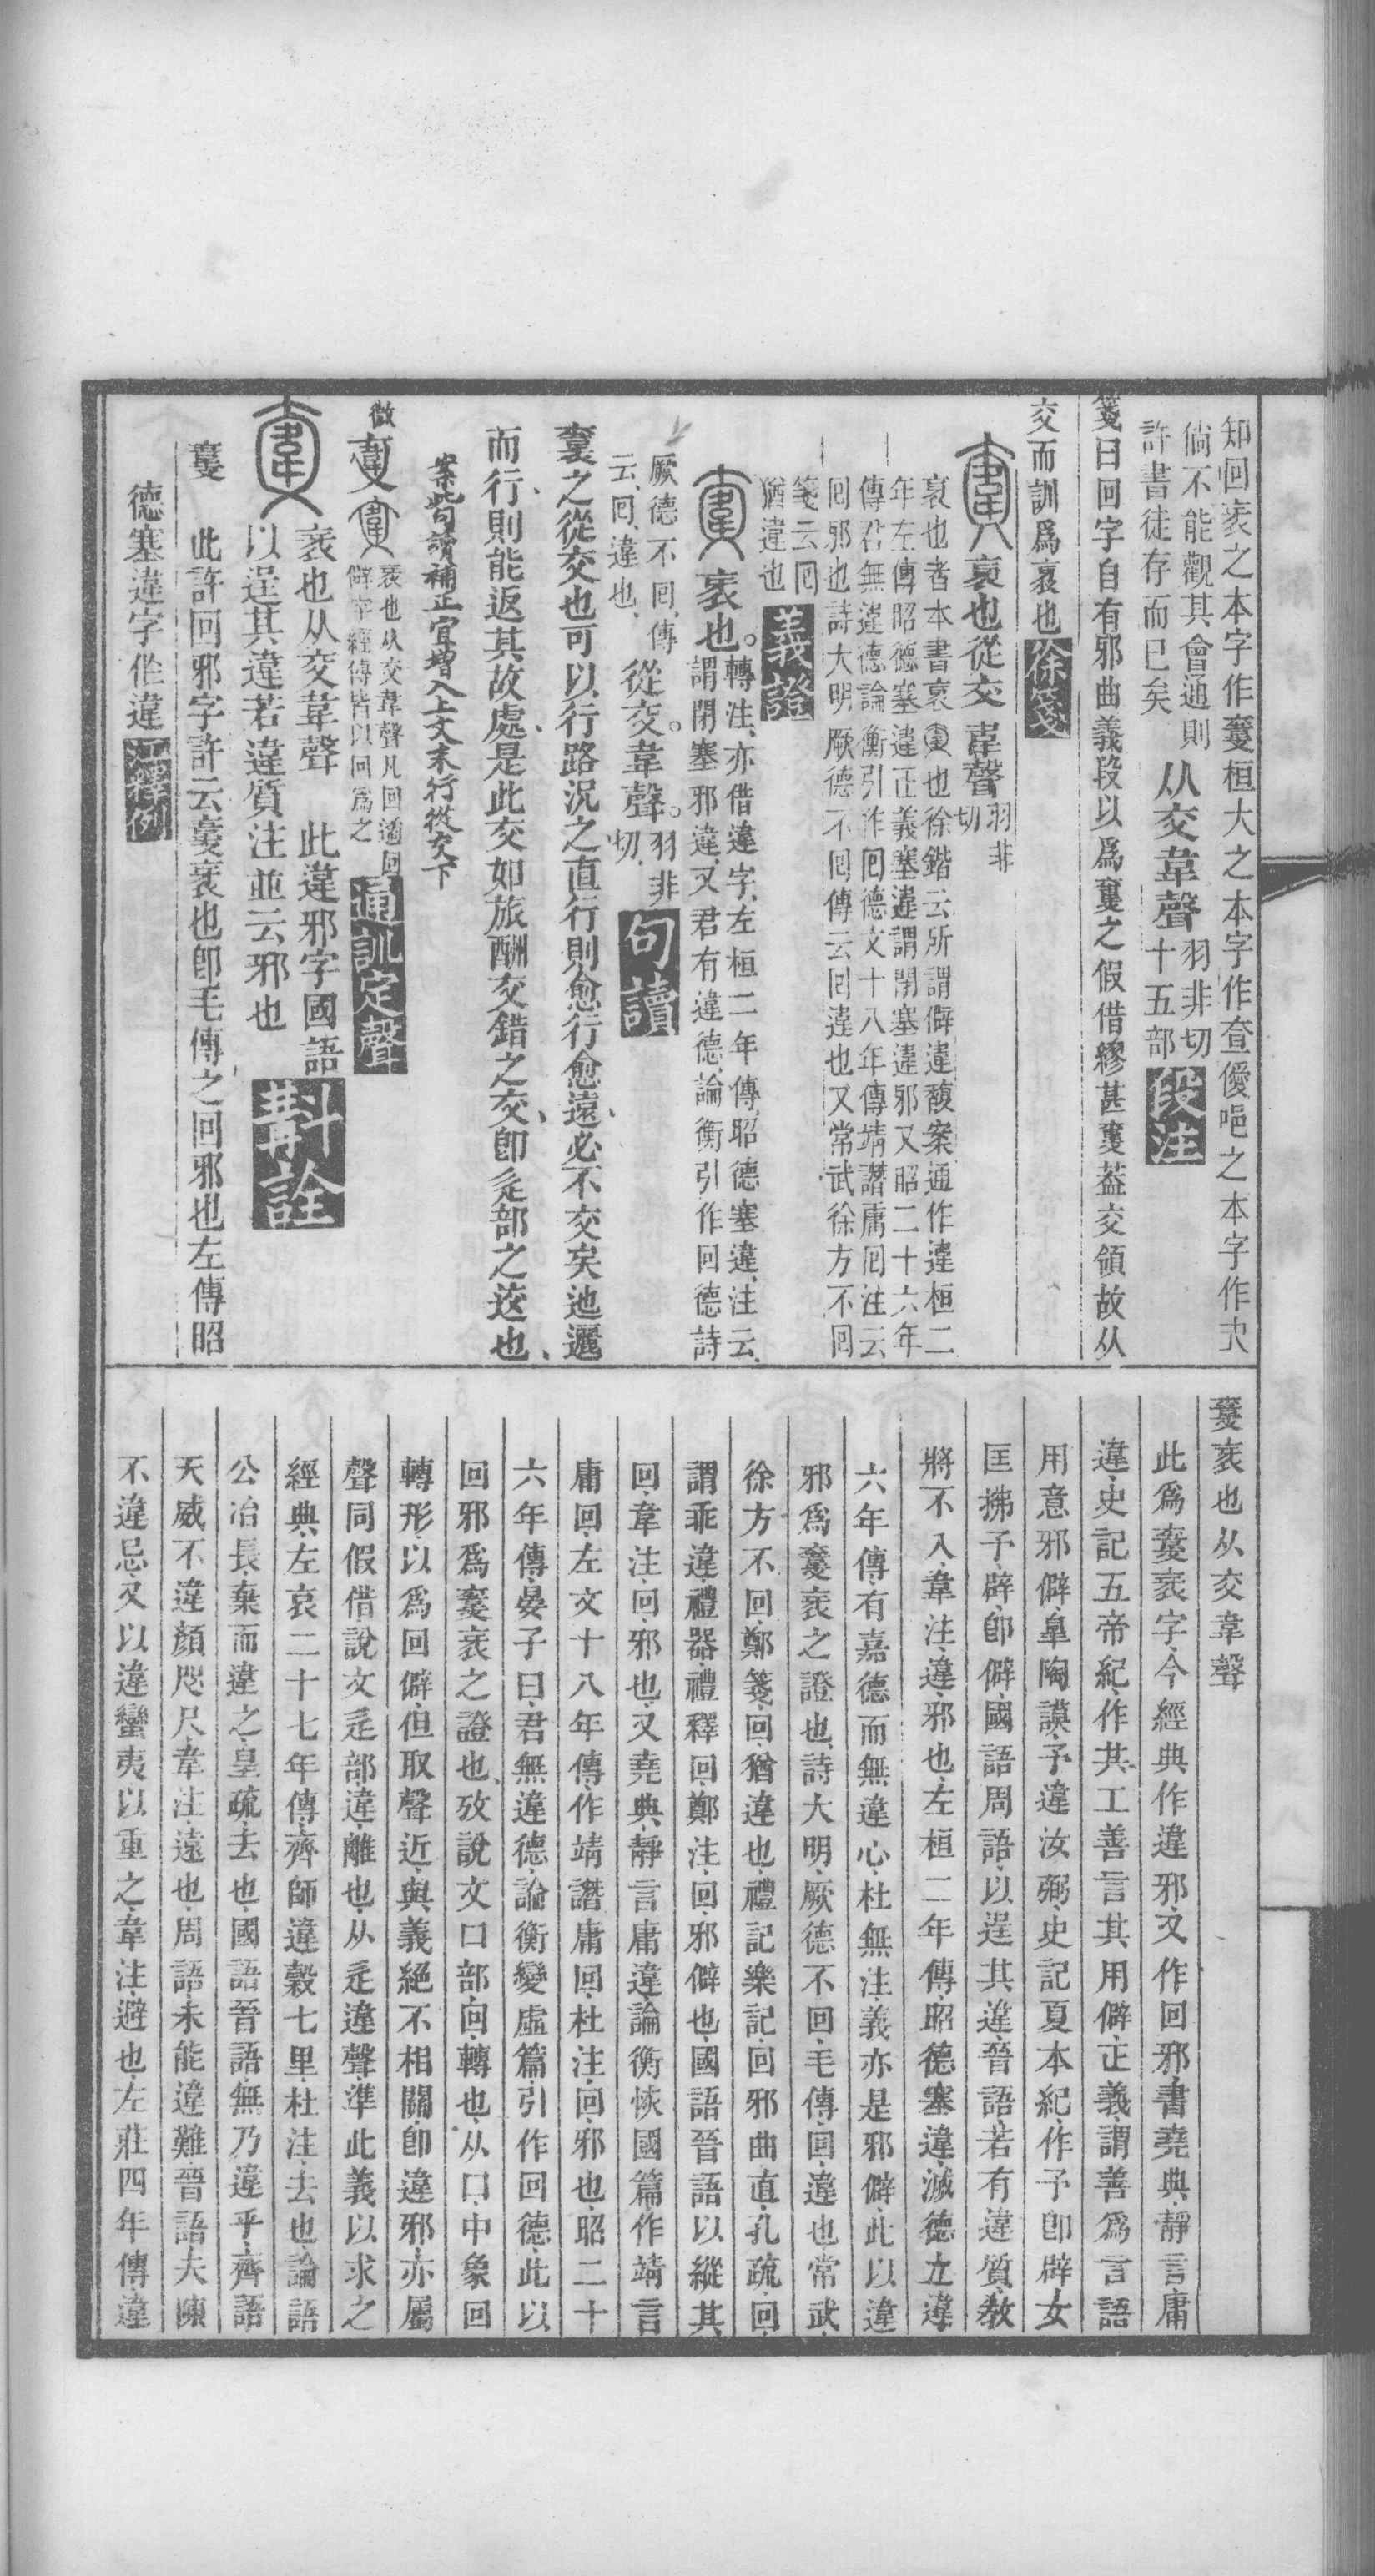 知回衺之本字作𡕢桓大之本字作查僾唈之本字作旡
倘不能觀其會通則
許書徒存而已矣
从交韋聲
羽非切
十五部
段注
箋曰回字自有邪曲義段以爲𡕢之假借繆甚𡕢蓋交領故从
交而訓爲衺也
徐箋
衺也從交韋聲
羽非
切
衺也者本書衺𡕢也徐鍇云所謂僻違馥案通作違桓二
年左傳昭德塞違正義塞違謂閉塞違邪又昭二十六年
傳君無違德論衡引作回德文十八年傳靖譖庸回注云
回邪也詩大明厥德不回傳云回違也又常武徐方不回
箋云回
猶違也
義證
衺也。
轉注、亦借違字、左桓二年傳、昭德塞違、注云、
謂閉塞邪違、又君有違德、論衡引作回德、詩
厥德不回、傳
云、回、違也、
從交。韋聲。
羽非
切、
句讀
𡕢之從交也可以行路況之直行則愈行愈遠必不交矣迤邐
而行、則能返其故處、是此交如旅酬交錯之交、卽辵部之䢒也、
案此句讀補正宜增入上文末行從交下
𡕢
衺也从交韋聲凡回遹回
僻字經傳皆以回爲之
通訓定聲
衺也从交韋聲 此違邪字國語
以逞其違若違質注並云邪也
斠詮
𡕢 此許回邪字許云𡕢衺也卽毛傳之回邪也左傳昭
德塞違字作違
江釋例
𡕢衺也从交韋聲
此爲𡕢衺字今經典作違邪又作回邪書堯典靜言庸
違史記五帝紀作共工善言其用僻正義謂善爲言語
用意邪僻皐陶謨予違汝弼史記夏本紀作予卽辟女
匡拂予辟卽僻國語周語以逞其違晉語若有違質敎
將不入韋注違邪也左桓二年傳昭德塞違滅德立違
六年傳有嘉德而無違心杜無注義亦是邪僻此以違
邪爲𡕢衺之證也詩大明厥德不回毛傳回違也常武
徐方不回鄭箋回猶違也禮記樂記回邪曲直孔疏回
謂乖違禮器禮釋回鄭注回邪僻也國語晉語以縱其
回韋注回邪也又堯典靜言庸違論衡恢國篇作靖言
庸回左文十八年傳作靖譖庸回杜注回邪也昭二十
六年傳晏子曰君無違德論衡變虛篇引作回德此以
回邪爲𡕢衺之證也攷說文口部回轉也从口中象回
轉形以爲回僻但取聲近與義絕不相關卽違邪亦屬
聲同假借說文辵部違離也从辵違聲準此義以求之
經典左哀二十七年傳齊師違穀七里杜注去也論語
公冶長棄而違之皇疏去也國語晉語無乃違乎齊語
天威不違顏咫尺韋注遠也周語未能違難晉語夫陳
不違忌又以違蠻夷以重之韋注避也左莊四年傳違